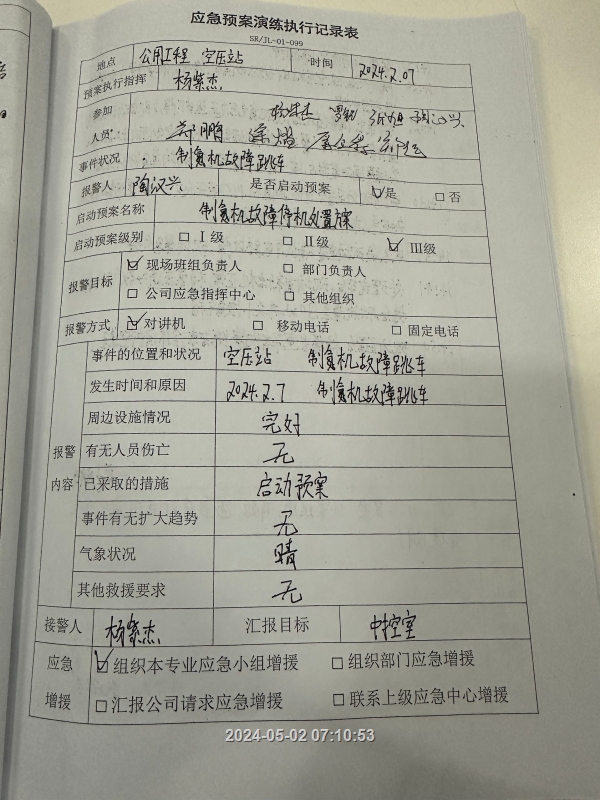 应急预案演练执行记录表
SR/JL-01-099
地点 公用工程 空压站 时间 2024.2.07
预案执行指挥 杨紫杰
参加
人员
事件状况 制氮机故障跳车
报警人 陶汉兴 是否启动预案 ☑是 □否
启动预案名称 制氮机故障停机处置方案
启动预案级别 □Ⅰ级 □Ⅱ级 ☑Ⅲ级
报警目标 ☑现场班组负责人 □部门负责人
□公司应急指挥中心 □其他组织
报警方式 ☑对讲机 □移动电话 □固定电话
报警内容
事件的位置和状况 空压站 制氮机故障跳车
发生时间和原因 2024.2.7 制氮机故障跳车
周边设施情况 完好
有无人员伤亡 无
已采取的措施 启动预案
事件有无扩大趋势 无
气象状况 晴
其他救援要求 无
接警人 杨紫杰 汇报目标 中控室
应急 ☑组织本专业应急小组增援 □组织部门应急增援
增援 □汇报公司请求应急增援 □联系上级应急中心增援
2024-05-02 07:10:53